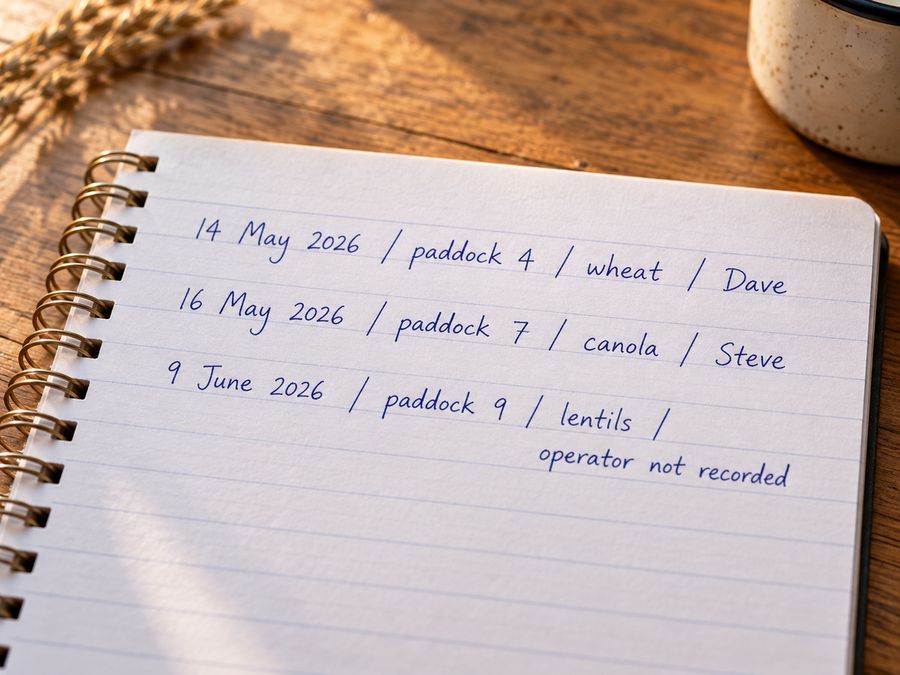 14 May 2026 / paddock 4 / wheat / Dave
16 May 2026 / paddock 7 / canola / Steve
9 June 2026 / paddock 9 / lentils /
operator not recorded